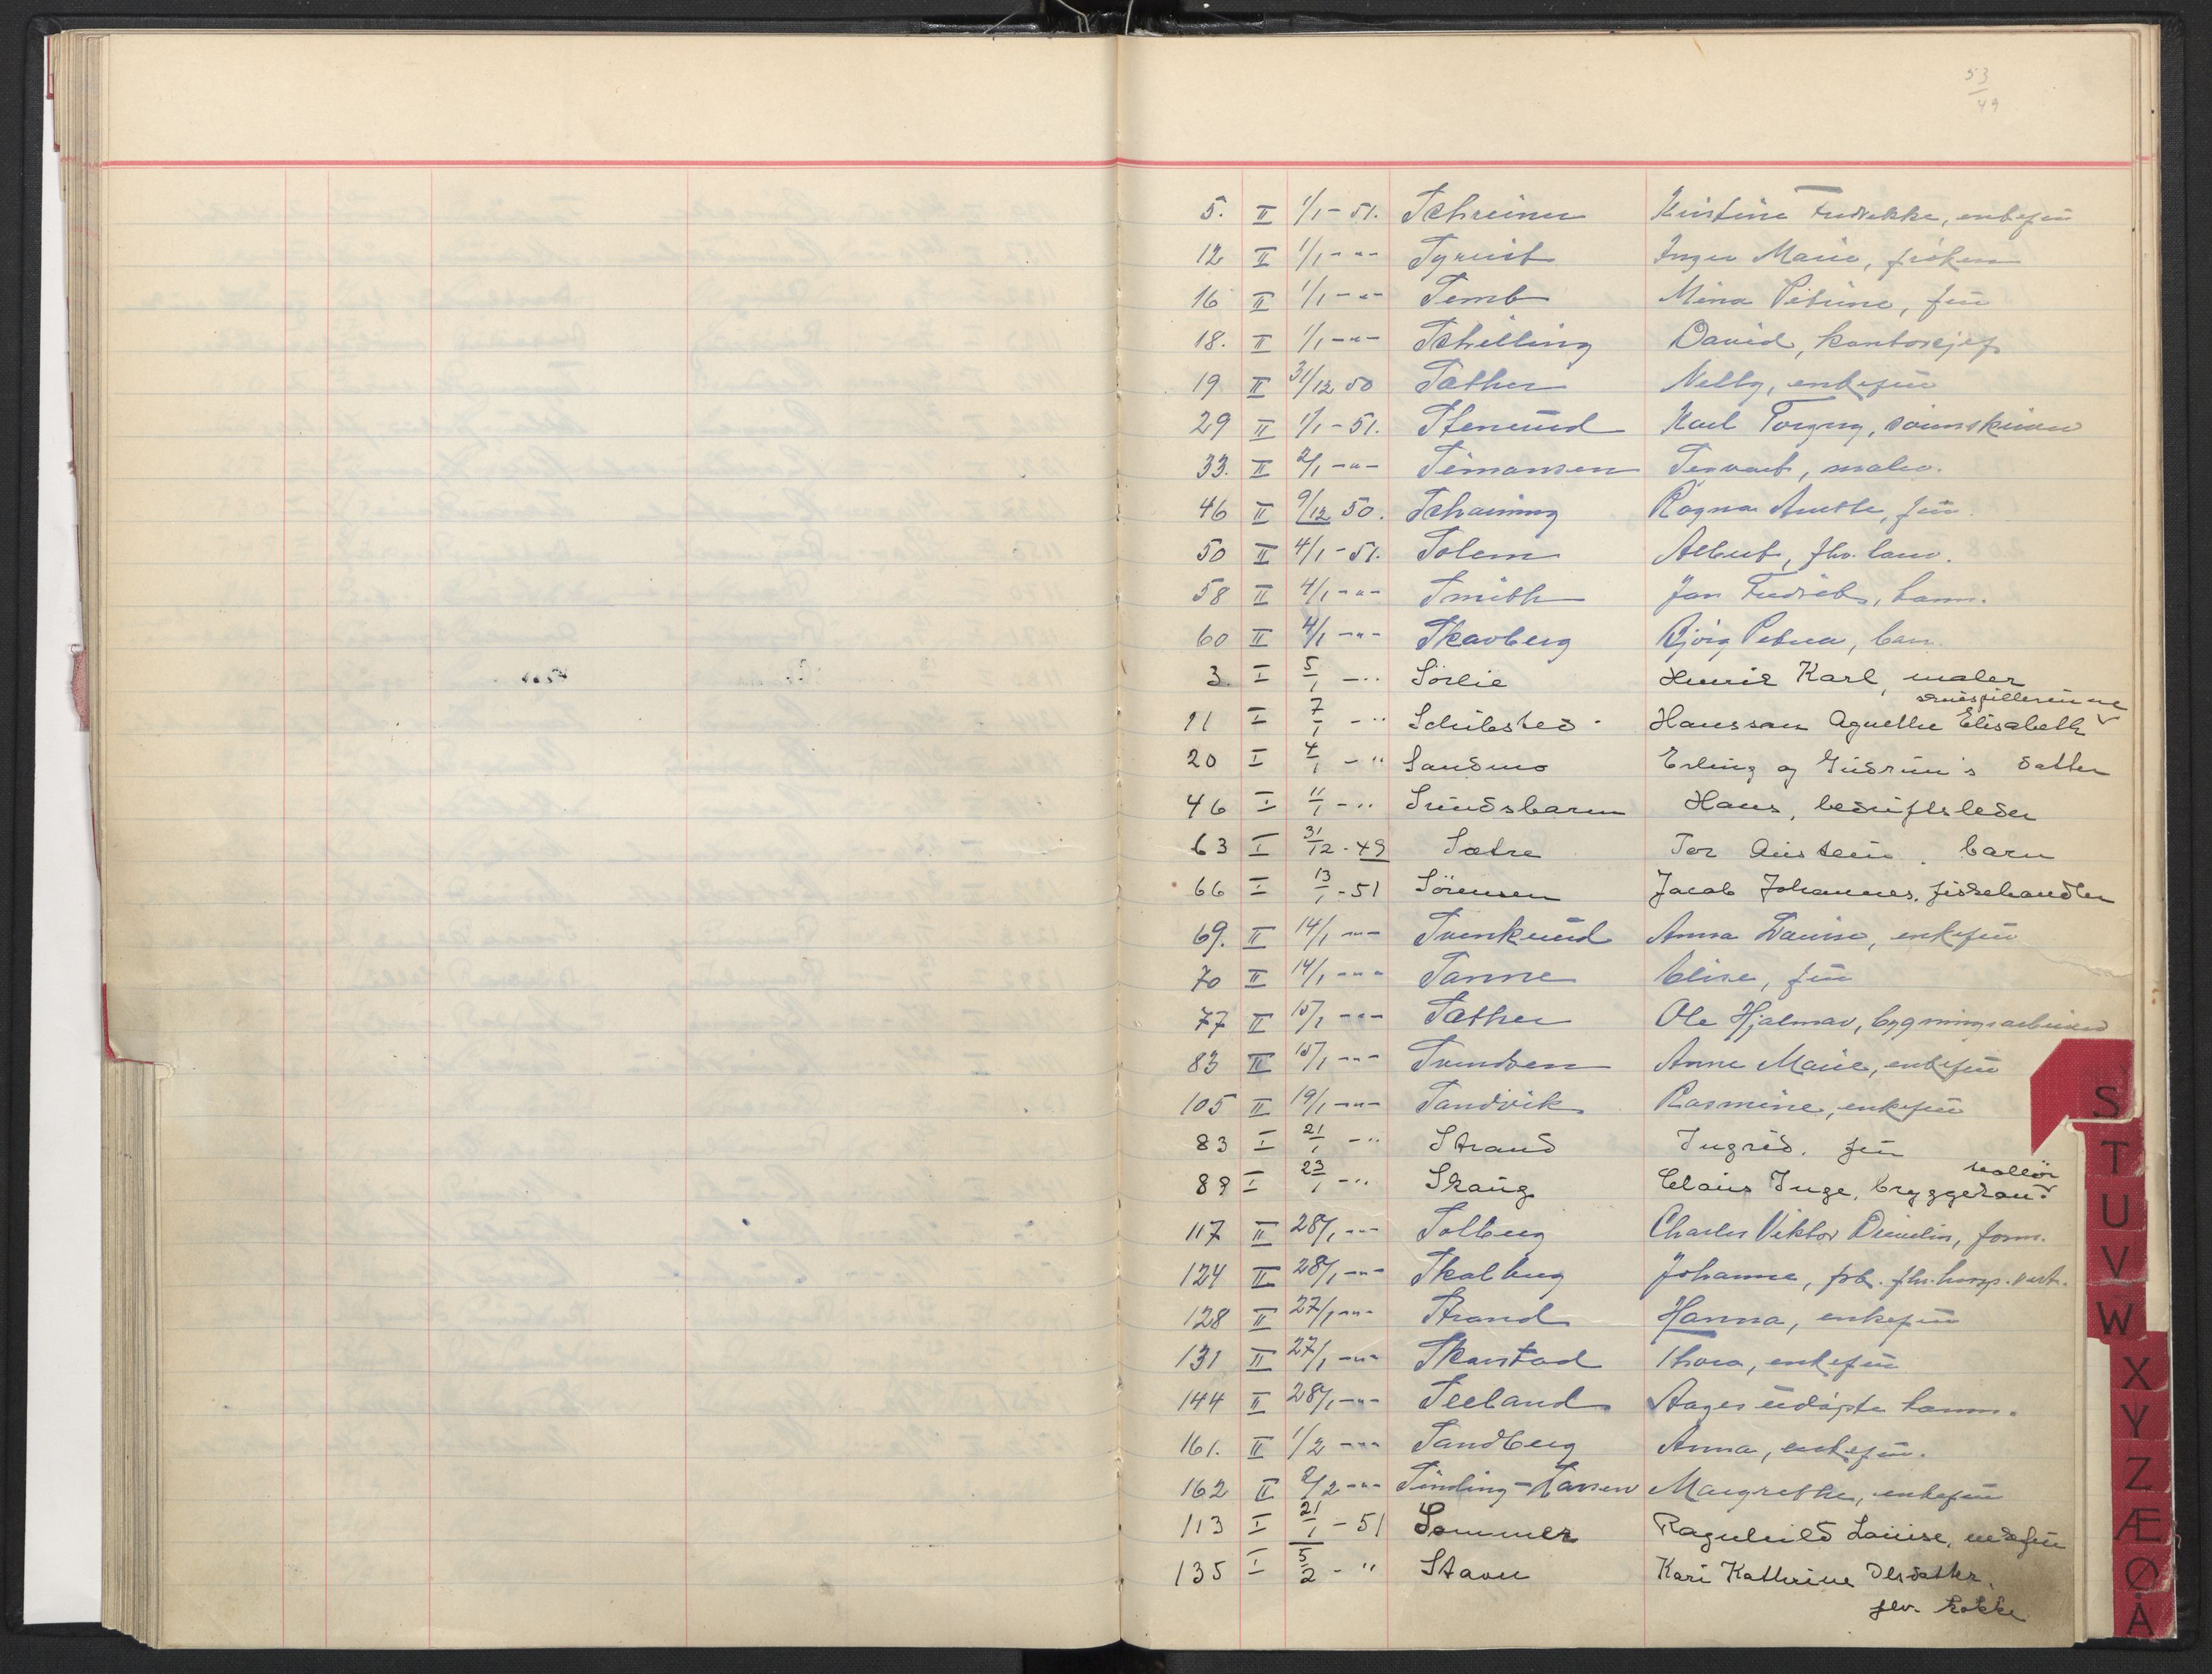 53
49
5. II 1/1-51. Schreiner Kristine Fredrikke, enkefru
12 II 1/1 -"- Syrrist Inger Marie, frøken
16 II 1/1 -"- Semb Mina Petrine, fru
18. II 1/1 -"- Schilling David, kontorsjef
19 II 31/12 50 Sæther Nelly, enkefru
29 II 1/1-51. Stenerud Karl Torgny,
33. II 2/1 -"- Simonsen maler.
46 II 9/12 50. Schanning Ragna Anette, fru
50 II 4/1-51. Solem Albert, fhv.
58 II 4/1 -"- Smith Jan Fredriks, barn.
60 II 4/1 -"- Skavberg Bjørg Petrea, barn
3. I 5/1 -" Sörlie Henrik Karl, maler
skuespillerinne
11 I 7/1 -" Schibsted Hansson Agnethe Elisabeth
20 I 4/1 -" Sandmo Erling og Gudrun's datter
46 I 11/1 -" Sundsbarm Hans, bedriftsleder
63 I 31/12-49 Sætre Tor Austein, barn
66 I 13/1-51 Sörensen Jacob Johannes, fiskehandler
69. II 14/1 -"- Svenkerud Anna Davine, enkefru
70 II 14/1 -"- Sanne Elise, fru
77 II 15/1 -"- Sæther Ole Hjalmar, bygningsarbeider
83 II 15/1 -"- Svendsen Anne Marie, enkefru
105 II 19/1 -"- Sandvik Rasmine, enkefru
83 I 21/1 -" Strand Ingrid, fru
89 I 23/1 -" Skaug Claus Inge, bryggekontrollör
117 II 28/1 -"- Solberg Charles Viktor form.
124 II 28/1 -"- Skalberg Johanne,
128 II 27/1 -"- Strand Hanna, enkefru
131 II 27/1 -"- Skarstad Thora, enkefru
144 II 28/1 -"- Seeland Aages udöpte barn.
161. II 1/2 -"- Sandberg Anna, enkefru.
162 II 2/2 -"- Sinding-Larsen Margrethe, enkefru
113 I 21/1-51 Sommer Ragnhild Louise, enkefru
135 I 5/2 -" Staver Kari Kathrine Olsdatter,
fhv. kokke
S
T
U
V
W
X
Y
Z
Æ
Ø
Å